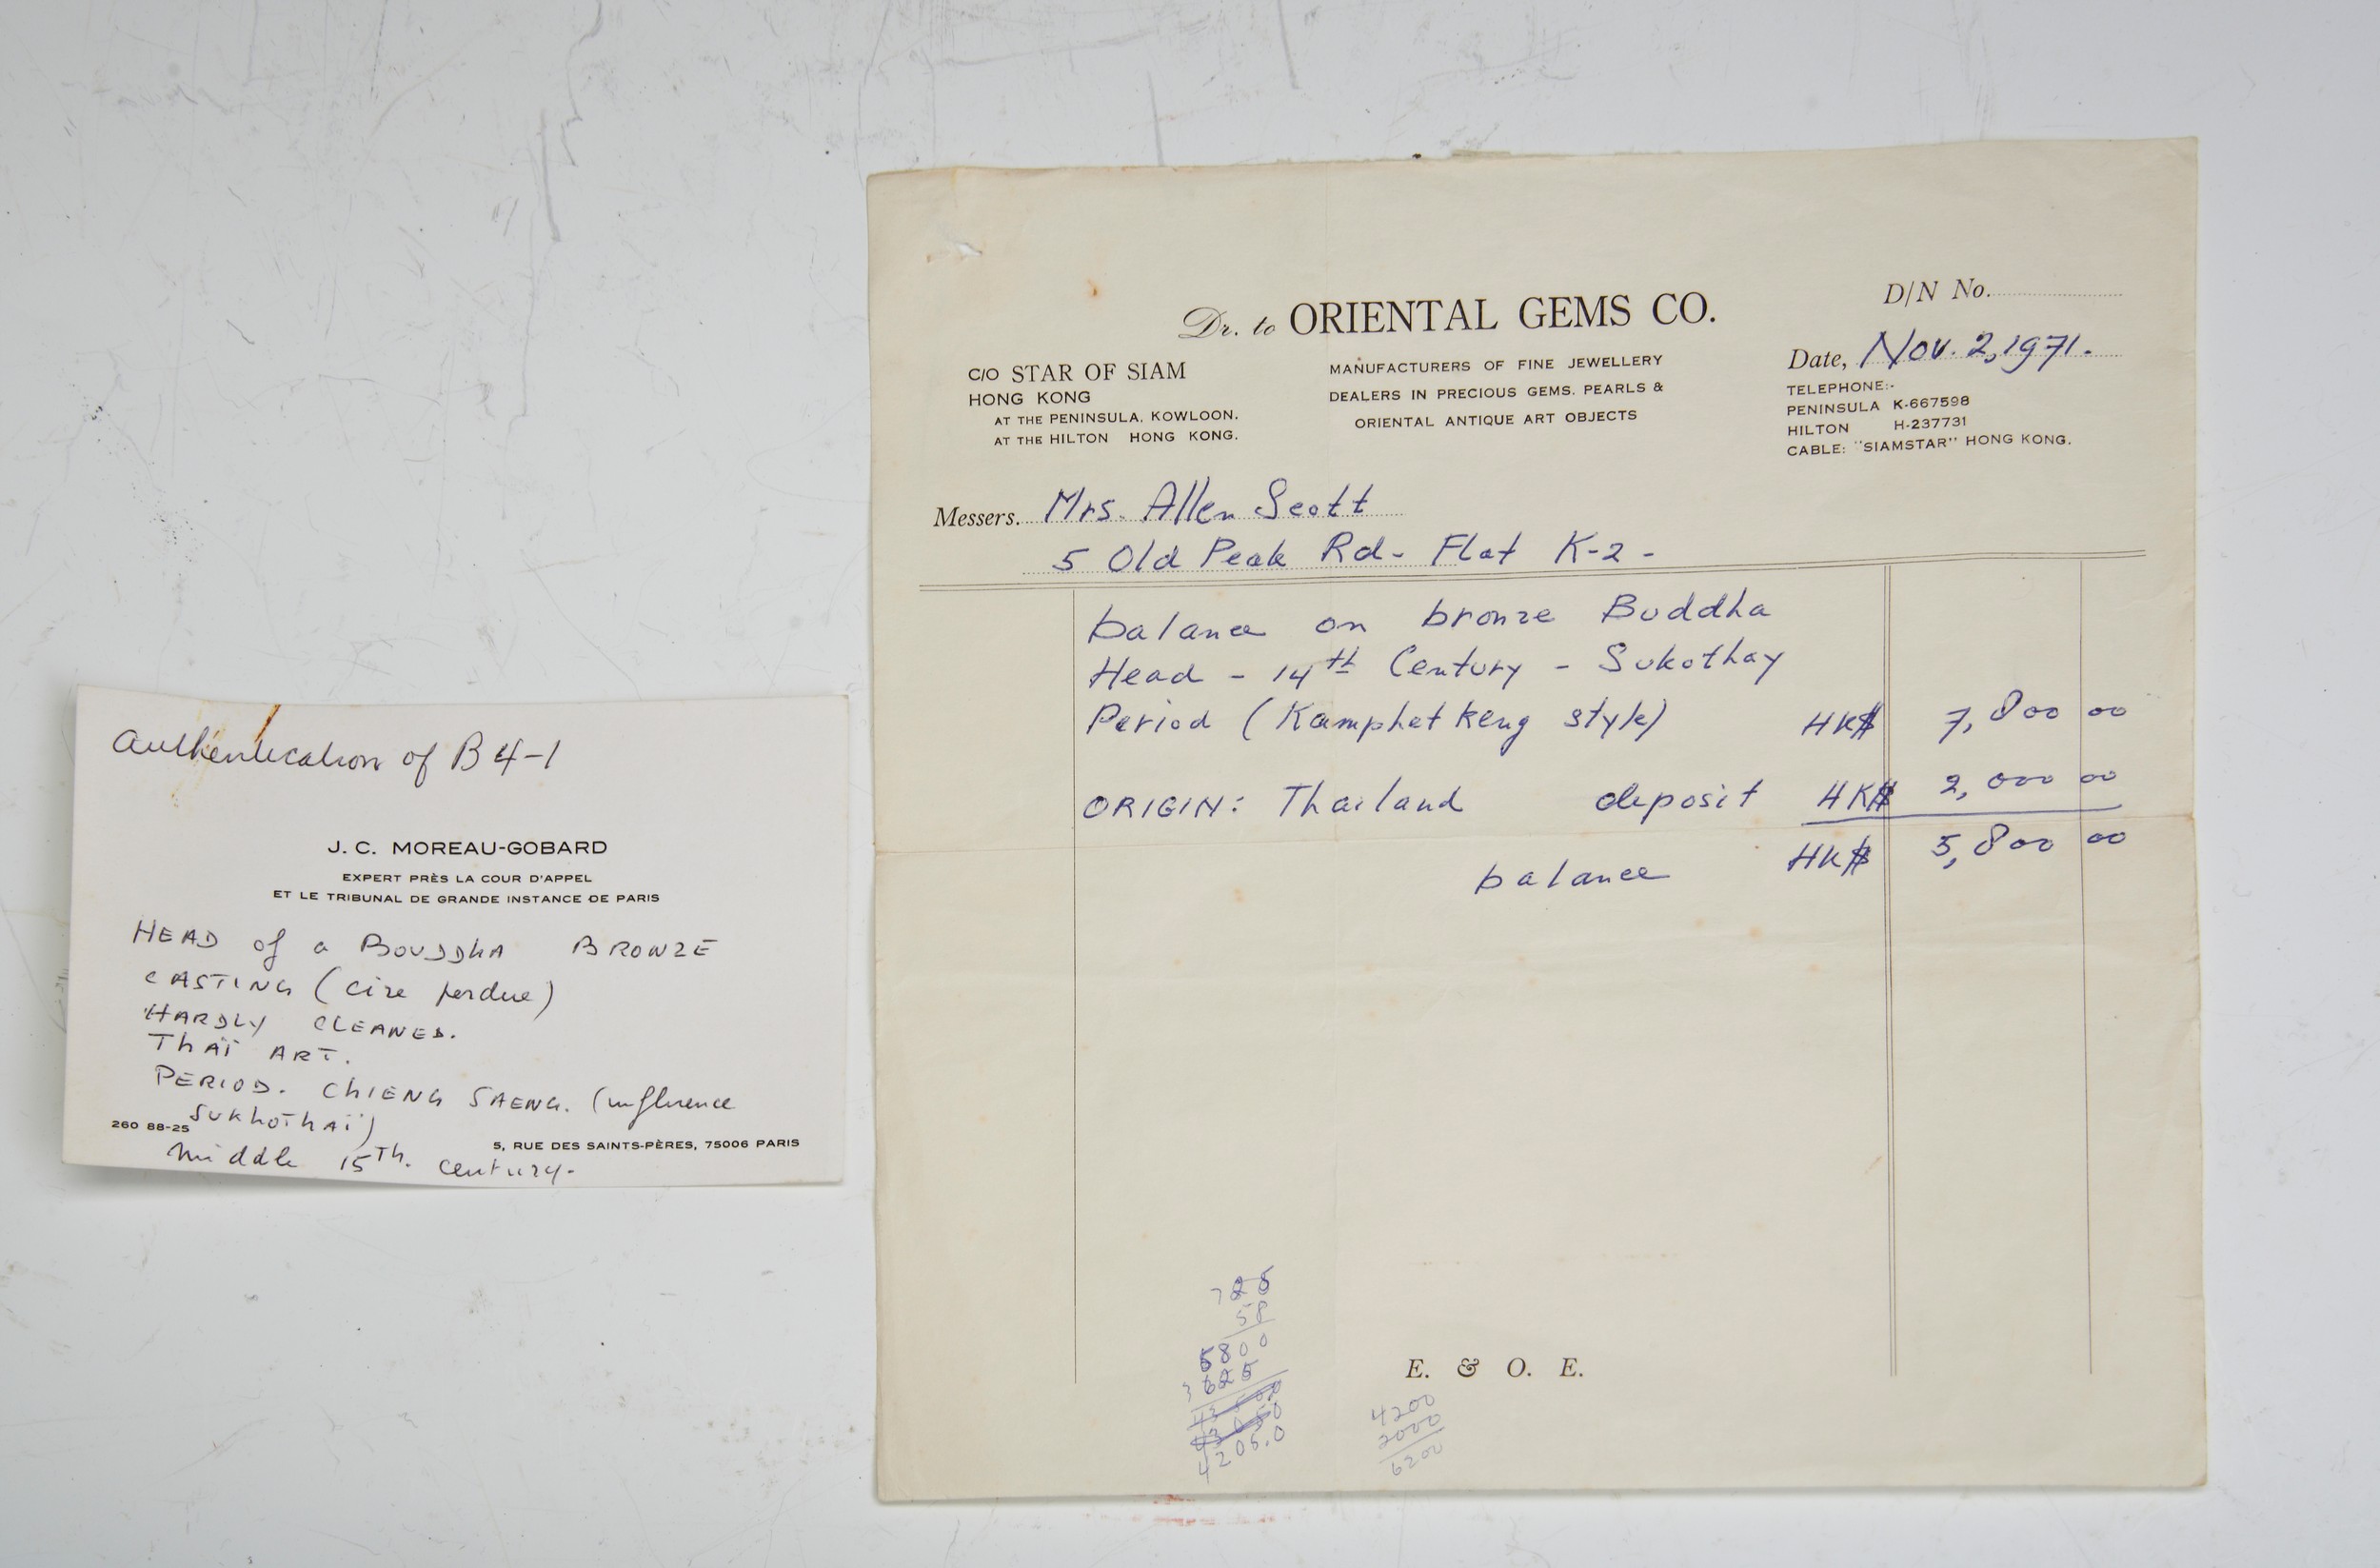 Authentication of B 4-1
J. C. MOREAU-GOBARD
EXPERT PRÈS LA COUR D'APPEL
ET LE TRIBUNAL DE GRANDE INSTANCE DE PARIS
HEAD of a BOUDDHA BRONZE
CASTING (cire perdue)
HARDLY CLEANED.
THAÏ ART.
PERIOD. CHIENG SAENG. (influence
SUKHOTHAÏ)
260 88-25
5, RUE DES SAINTS-PÈRES, 75006 PARIS
Middle 15Th. century.
D/N No.
Dr. to ORIENTAL GEMS CO.
Date, Nov. 2, 1971.
C/O STAR OF SIAM
HONG KONG
AT THE PENINSULA, KOWLOON.
AT THE HILTON HONG KONG.
MANUFACTURERS OF FINE JEWELLERY
DEALERS IN PRECIOUS GEMS. PEARLS &
ORIENTAL ANTIQUE ART OBJECTS
TELEPHONE:-
PENINSULA K-667598
HILTON H-237731
CABLE: "SIAMSTAR" HONG KONG.
Messers. Mrs. Allen Scott
5 Old Peak Rd- Flat K-2 -
balance on bronze Buddha
Head - 14th Century - Sukothay
Period (Kamphet Keng style) HK$ 7,800 00
ORIGIN: Thailand deposit HK$ 2,000 00
balance HK$ 5,800 00
725
58
5800
3625
4205.0
E. & O. E.
4200
2000
6200